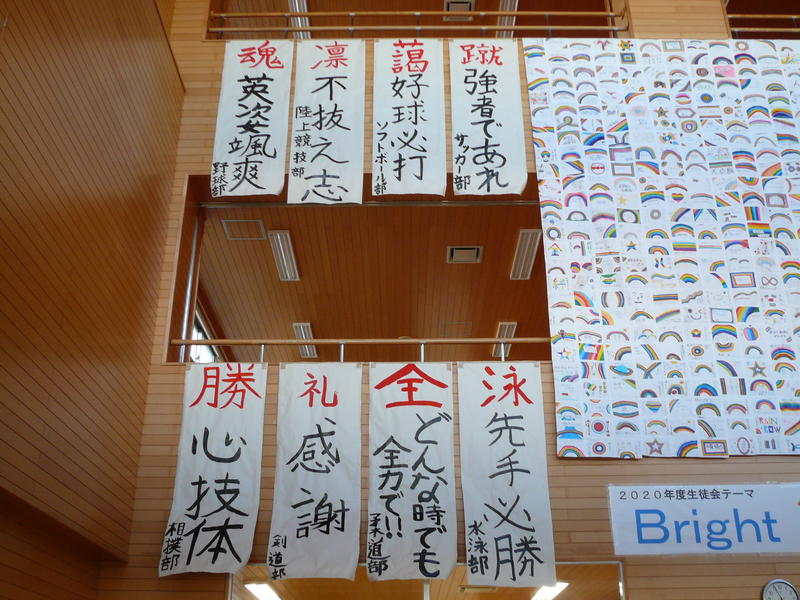 魂
英姿颯爽
野球部
凛
不抜之志
陸上競技部
藹
好球必打
ソフトボール部
蹴
強者であれ
サッカー部
勝
心技体
相撲部
礼
感謝
剣道部
全
どんな時でも
全力で!!
柔道部
泳
先手必勝
水泳部
2020年度生徒会テーマ
Bright